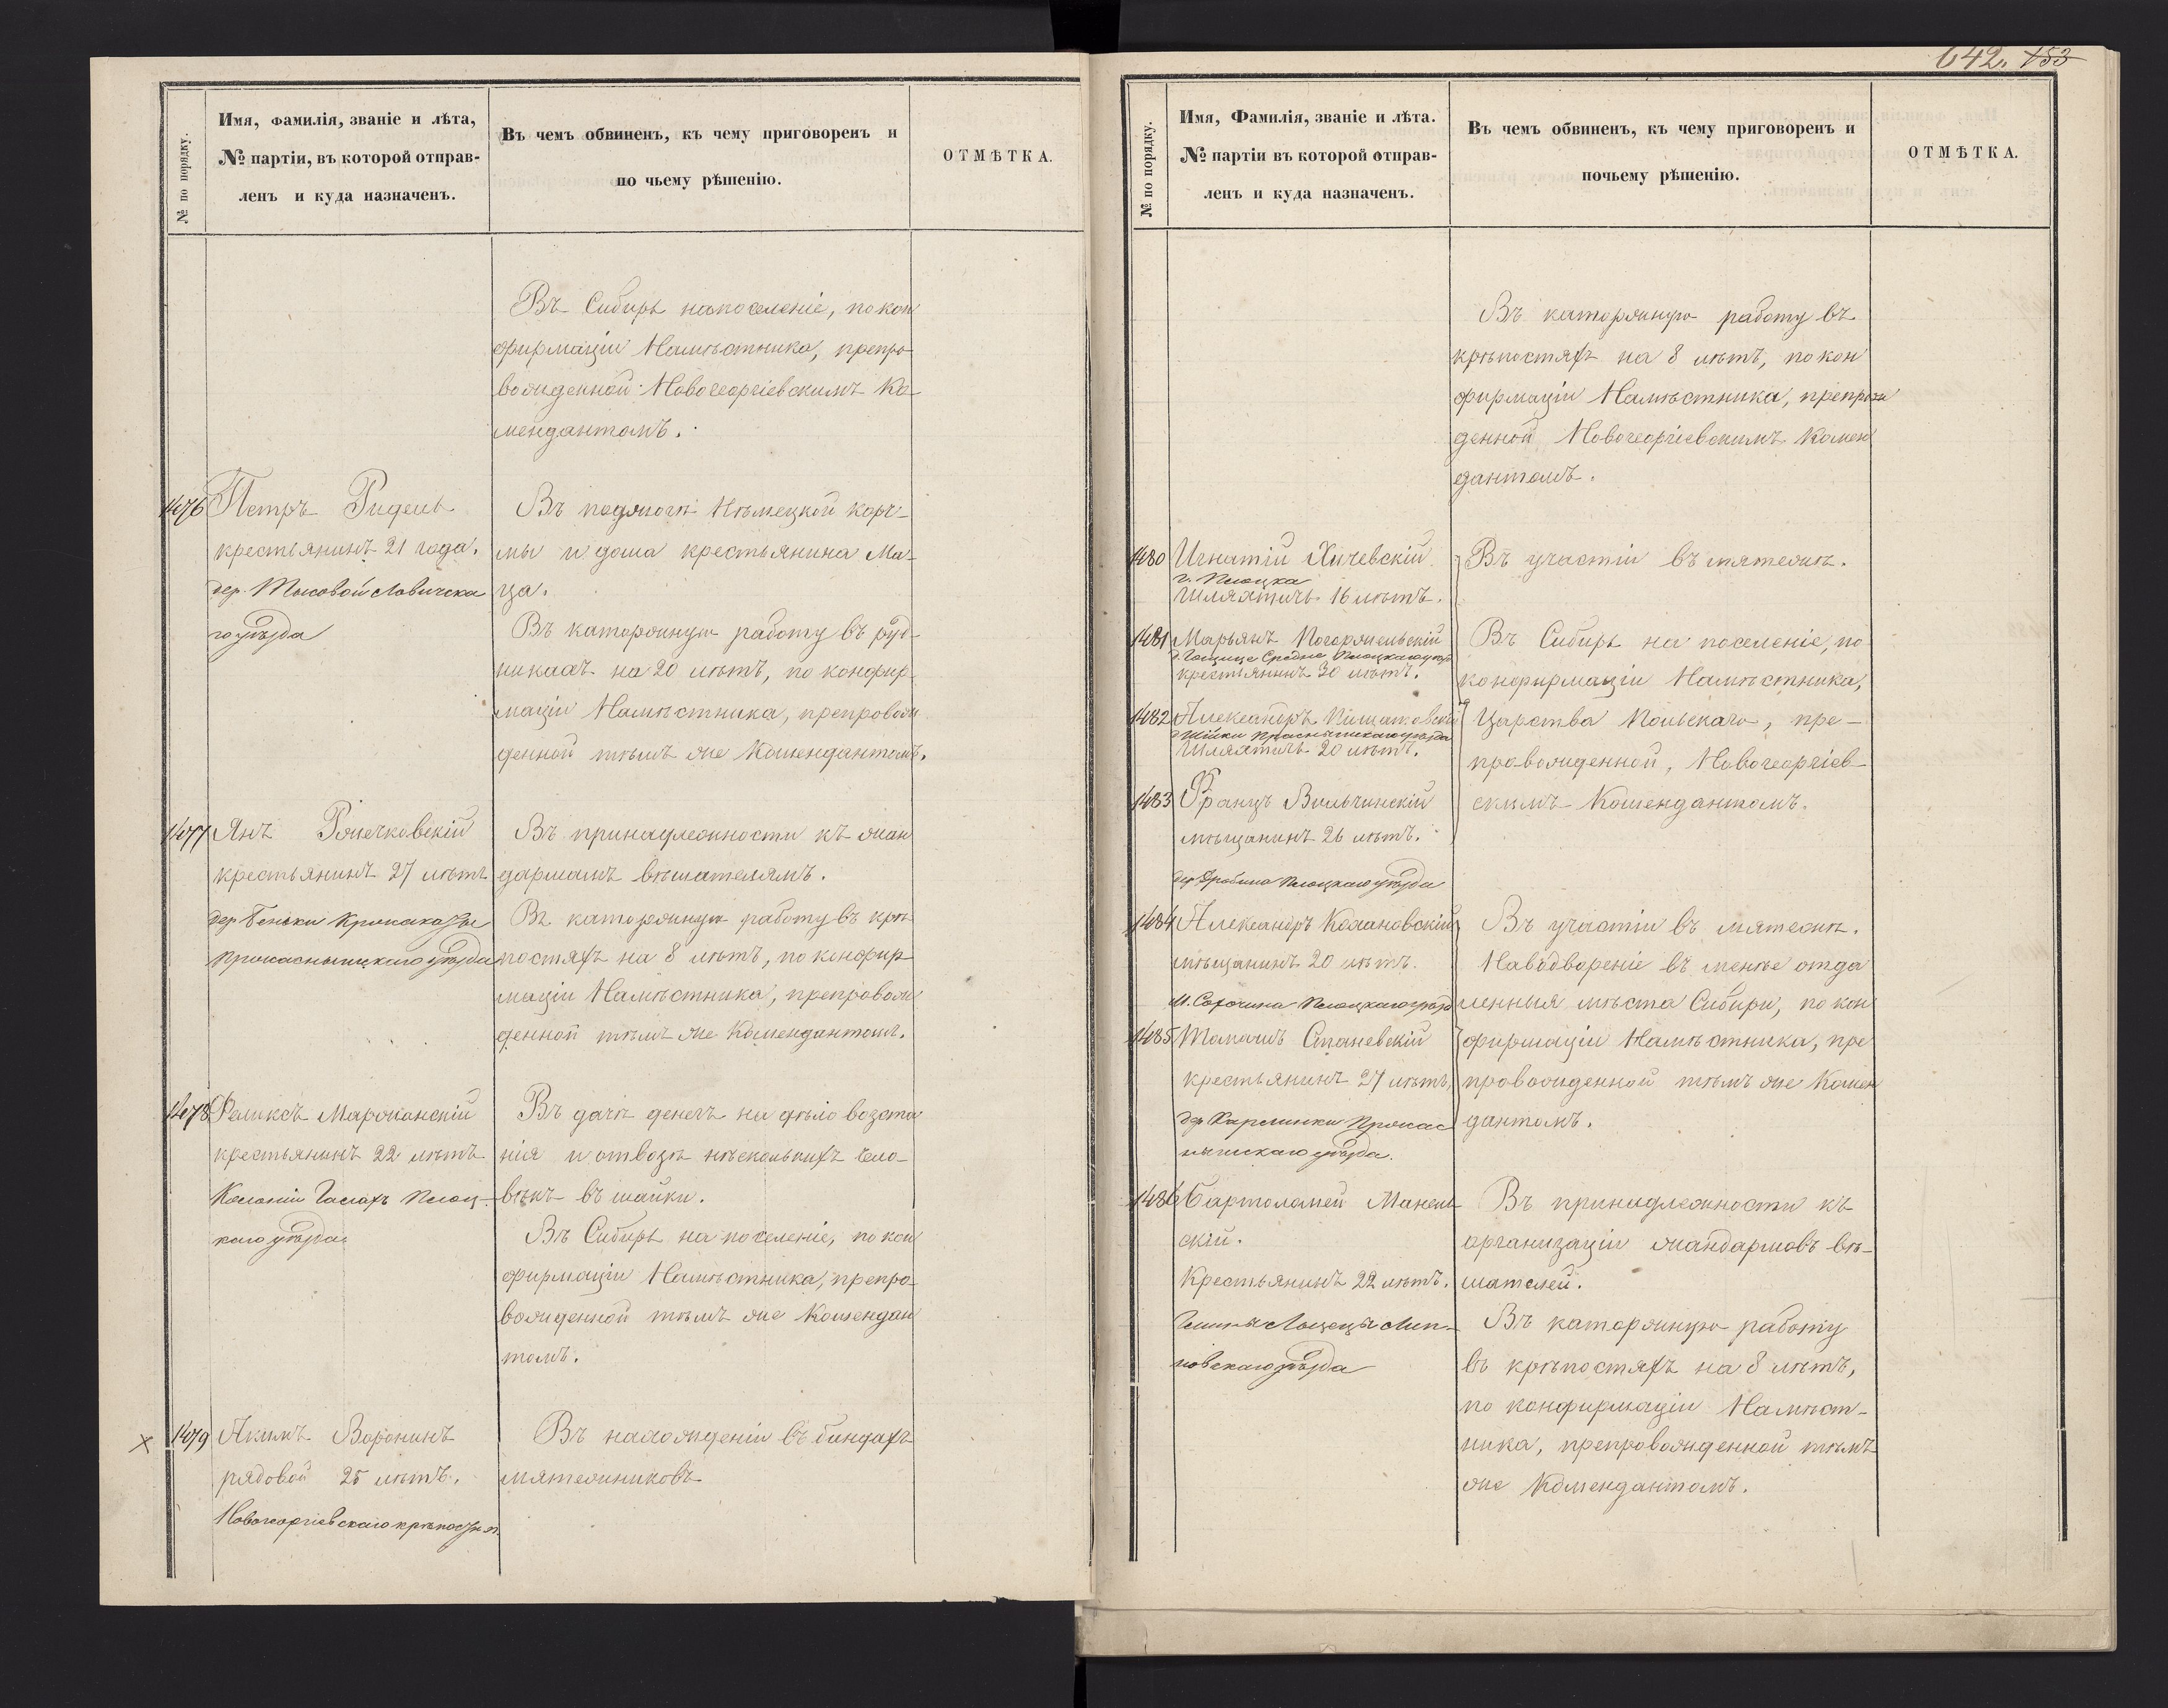 № по порядку.
Имя, Фамилія, званіе и лѣта,
№ партіи, въ которой отправ-
ленъ и куда назначенъ.
Въ чемъ обвиненъ, къ чему приговоренъ и
по чьему рѣшенію.
ОТМѢТКА.
Въ Сибирь на поселеніе, по кон
фирмаціи Намѣстника, препро
вожденной Новогеоргіевскимъ Ко
мендантомъ.
1476
Петръ Ридель
крестьянинъ 21 года.
дер. Ловическа
го уѣзда
Въ поджогѣ Нѣмецкой корч-
мы и дома крестьянина Ма-
ца.
Въ каторжную работу въ руд-
никахъ на 20 лѣтъ, по конфир-
маціи Намѣстника, препровож
денной тѣмъ же Комендантомъ.
1477
Янъ
крестьянинъ 27 лѣтъ
дер
уѣзда
Въ принадлежности къ жан
дармамъ вѣшателямъ.
Въ каторжную работу въ крѣ-
постяхъ на 8 лѣтъ, по конфир
маціи Намѣстника, препровож
денной тѣмъ же Комендантомъ.
1478
Феликсъ
крестьянинъ 22 лѣтъ
Колоніи Плоц-
каго уѣзда
Въ дачѣ денегъ на дѣло возста
нія и отвозѣ нѣсколькихъ чело-
вѣкъ въ шайки.
Въ Сибирь на поселеніе, по кон
фирмаціи Намѣстника, препро-
вожденной тѣмъ же Комендан
томъ.
× 1479
Акимъ Воронинъ
рядовой 25 лѣтъ.
Новогеоргіевскаго
Въ нахожденіи въ бандахъ
мятежниковъ
642. 153
№ по порядку.
Имя, Фамилія, званіе и лѣта.
№ партіи въ которой отправ-
ленъ и куда назначенъ.
Въ чемъ обвиненъ, къ чему приговоренъ и
почьему рѣшенію.
ОТМѢТКА.
Въ каторжную работу въ
крѣпостяхъ на 8 лѣтъ, по кон
фирмаціи Намѣстника, препрож
денной Новогеоргіевскимъ Комен
дантомъ.
1480
Игнатій Хичевскій
г. Плоцка
Шляхтичъ 16 лѣтъ.
Въ участіи въ мятежѣ.
1481
Марьянъ
крестьянинъ 30 лѣтъ.
Въ Сибирь на поселеніе, по
конфирмаціи Намѣстника,
1482
Александръ
Шляхтичъ 20 лѣтъ.
Царства Польскаго, пре-
провожденной, Новогеоргіев-
1483
Францъ Вильчинскій
мѣщанинъ 26 лѣтъ.
дер Дробина Плоцкаго уѣзда
скимъ Комендантомъ.
1484
Александръ Кохановскій
мѣщанинъ 20 лѣтъ.
Плоцкаго уѣзд
Въ участіи въ мятежѣ.
На водвореніе въ менѣе отда
ленныя мѣста Сибири, по кон
1485
Томашъ
крестьянинъ 27 лѣтъ,
дер
уѣзда.
фирмаціи Намѣстника, пре
провожденной тѣмъ же Комен
дантомъ.
1486
Бартоломей Манель
скій.
Крестьянинъ 22 лѣтъ.
Гмины Лип-
новскаго уѣзда
Въ принадлежности къ
организаціи жандармовъ вѣ-
шателей.
Въ каторжную работу
въ крѣпостяхъ на 8 лѣтъ,
по конфирмаціи Намѣст-
ника, препровожденной тѣмъ
же Комендантомъ.